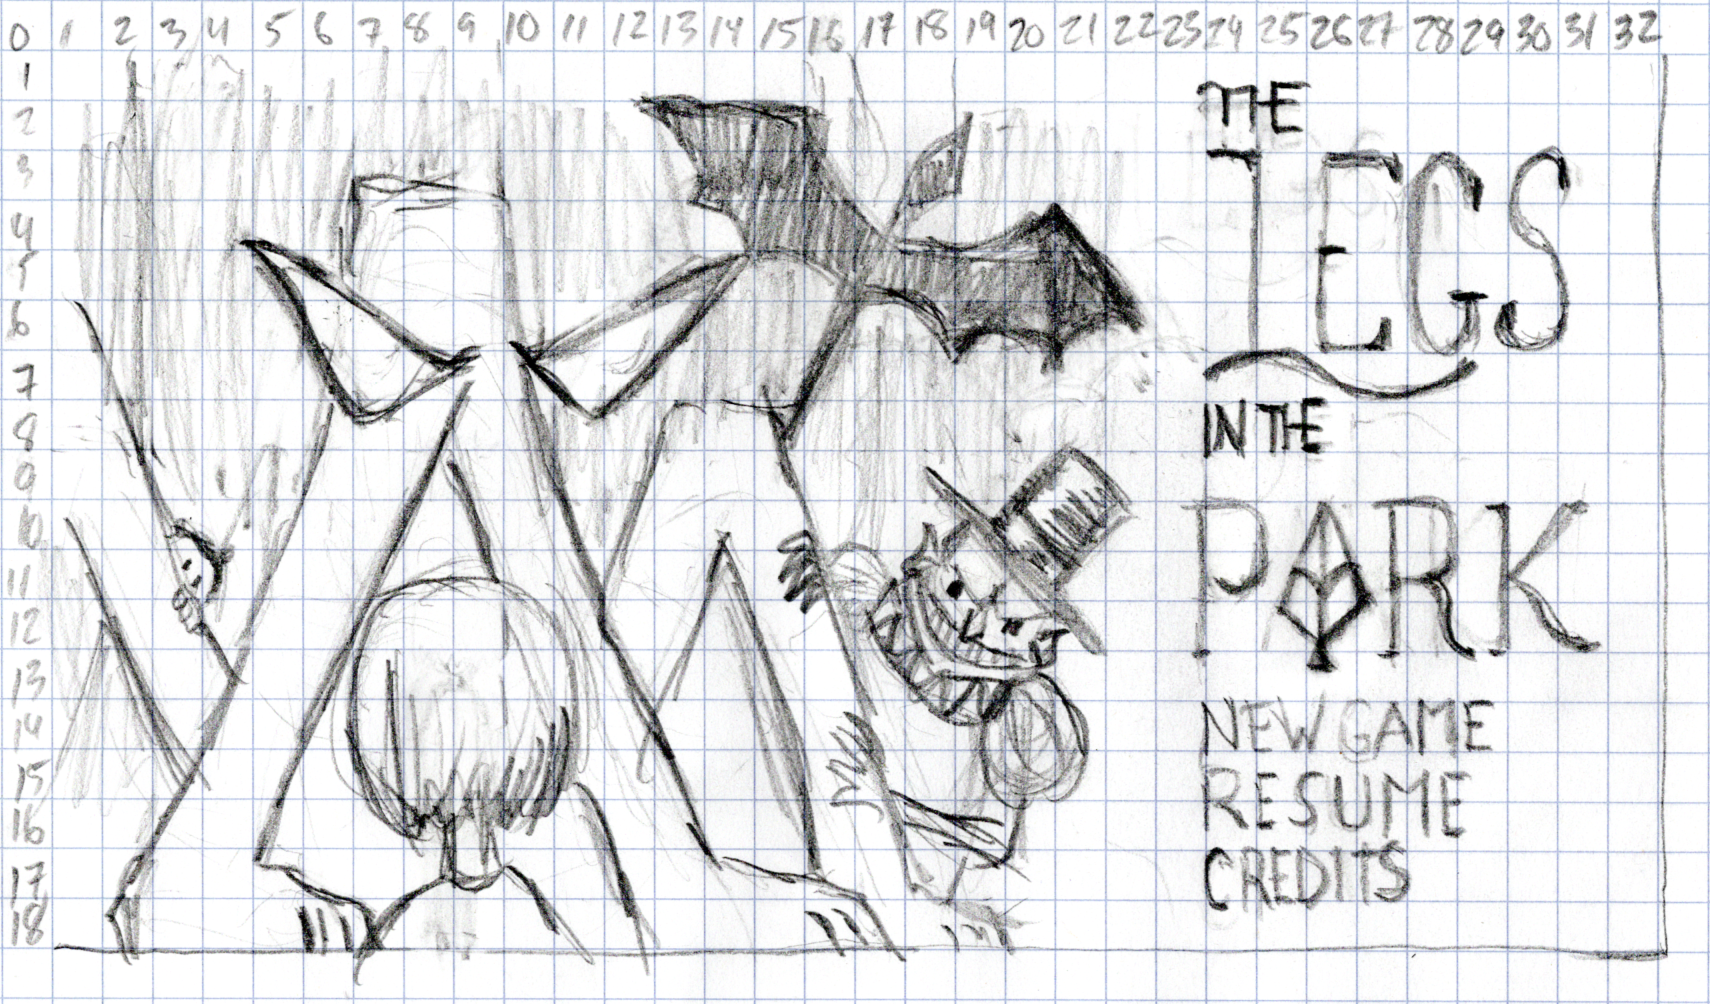 0 1 2 3 4 5 6 7 8 9 10 11 12 13 14 15 16 17 18 19 20 21 22 23 24 25 26 27 28 29 30 31 32
1
2
3
4
5
6
7
8
9
10
11
12
13
14
15
16
17
18
THE
LEGS
IN THE
PARK
NEW GAME
RESUME
CREDITS